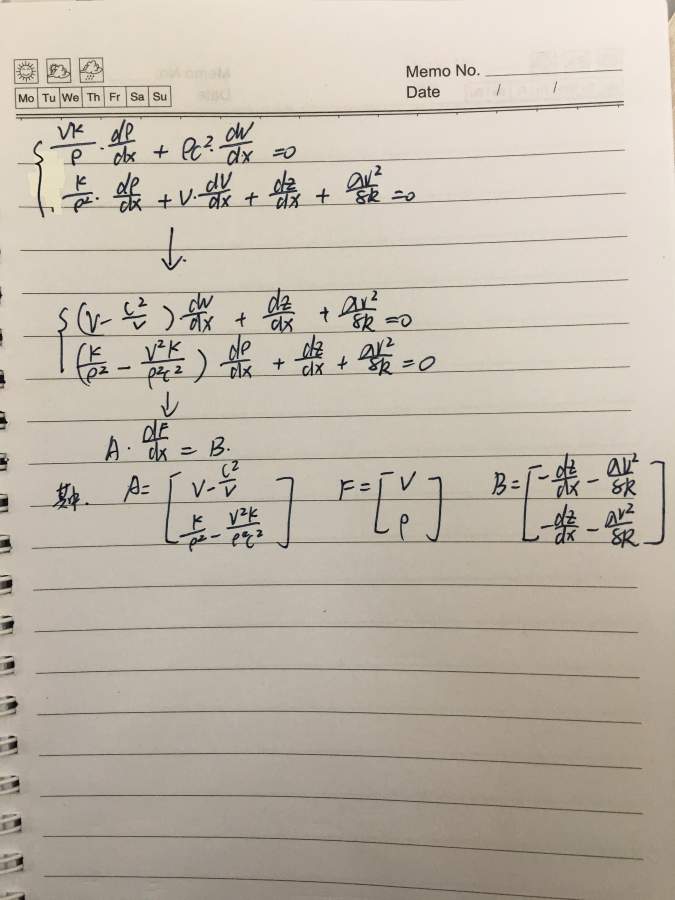 Memo No.
Mo Tu We Th Fr Sa Su Date / /
{ VK/ρ · dρ/dx + ρc² · dV/dx = 0
K/ρ² · dρ/dx + V · dV/dx + dz/dx + av²/8R = 0
↓
{ (V - c²/v) dV/dx + dz/dx + av²/8R = 0
(K/ρ² - V²K/ρ²c²) dρ/dx + dz/dx + av²/8R = 0
↓
A · dF/dx = B.
其中. A = [ V - c²/v ; K/ρ² - V²K/ρ²c² ] F = [ V ; ρ ] B = [ -dz/dx - av²/8R ; -dz/dx - av²/8R ]